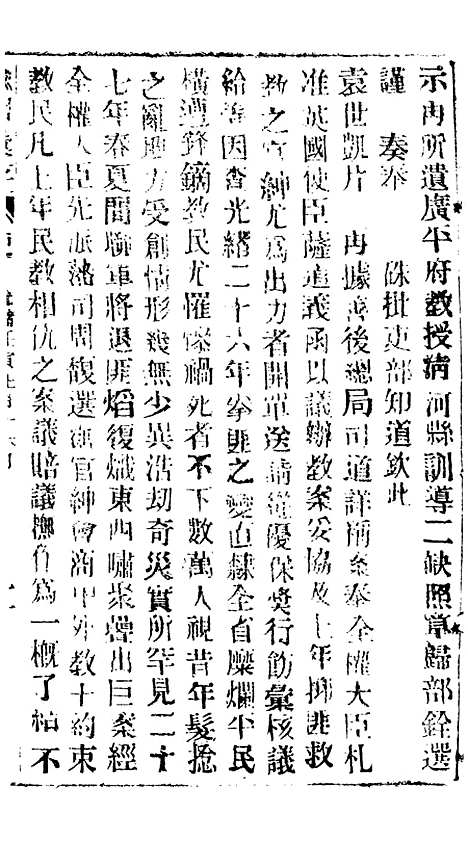 示再所遺廣平府教授淸河縣訓導二缺照章歸部銓選
謹 奏奉 硃批吏部知道欽此
袁世凱片 再據善後總局司道詳稱案奉全權大臣札
准英國使臣薩道義函以議辦教案妥協及上年抑匪救
教之官紳尤爲出力者開單送請從優保奬行飭彙核議
給等因查光緖二十六年拳匪之變直隸全省糜爛平民
橫遭鋒鏑教民尤罹慘禍死者不下數萬人視昔年髮捻
之亂地方受創情形幾無少異浩劫奇災實所罕見二十
七年春夏間聯軍將退匪熖復熾東西嘯聚疊出巨案經
全權大臣先派臬司周馥選派官紳會商中外教士約束
教民凡上年民教相仇之案議賠議撫作爲一槪了結不